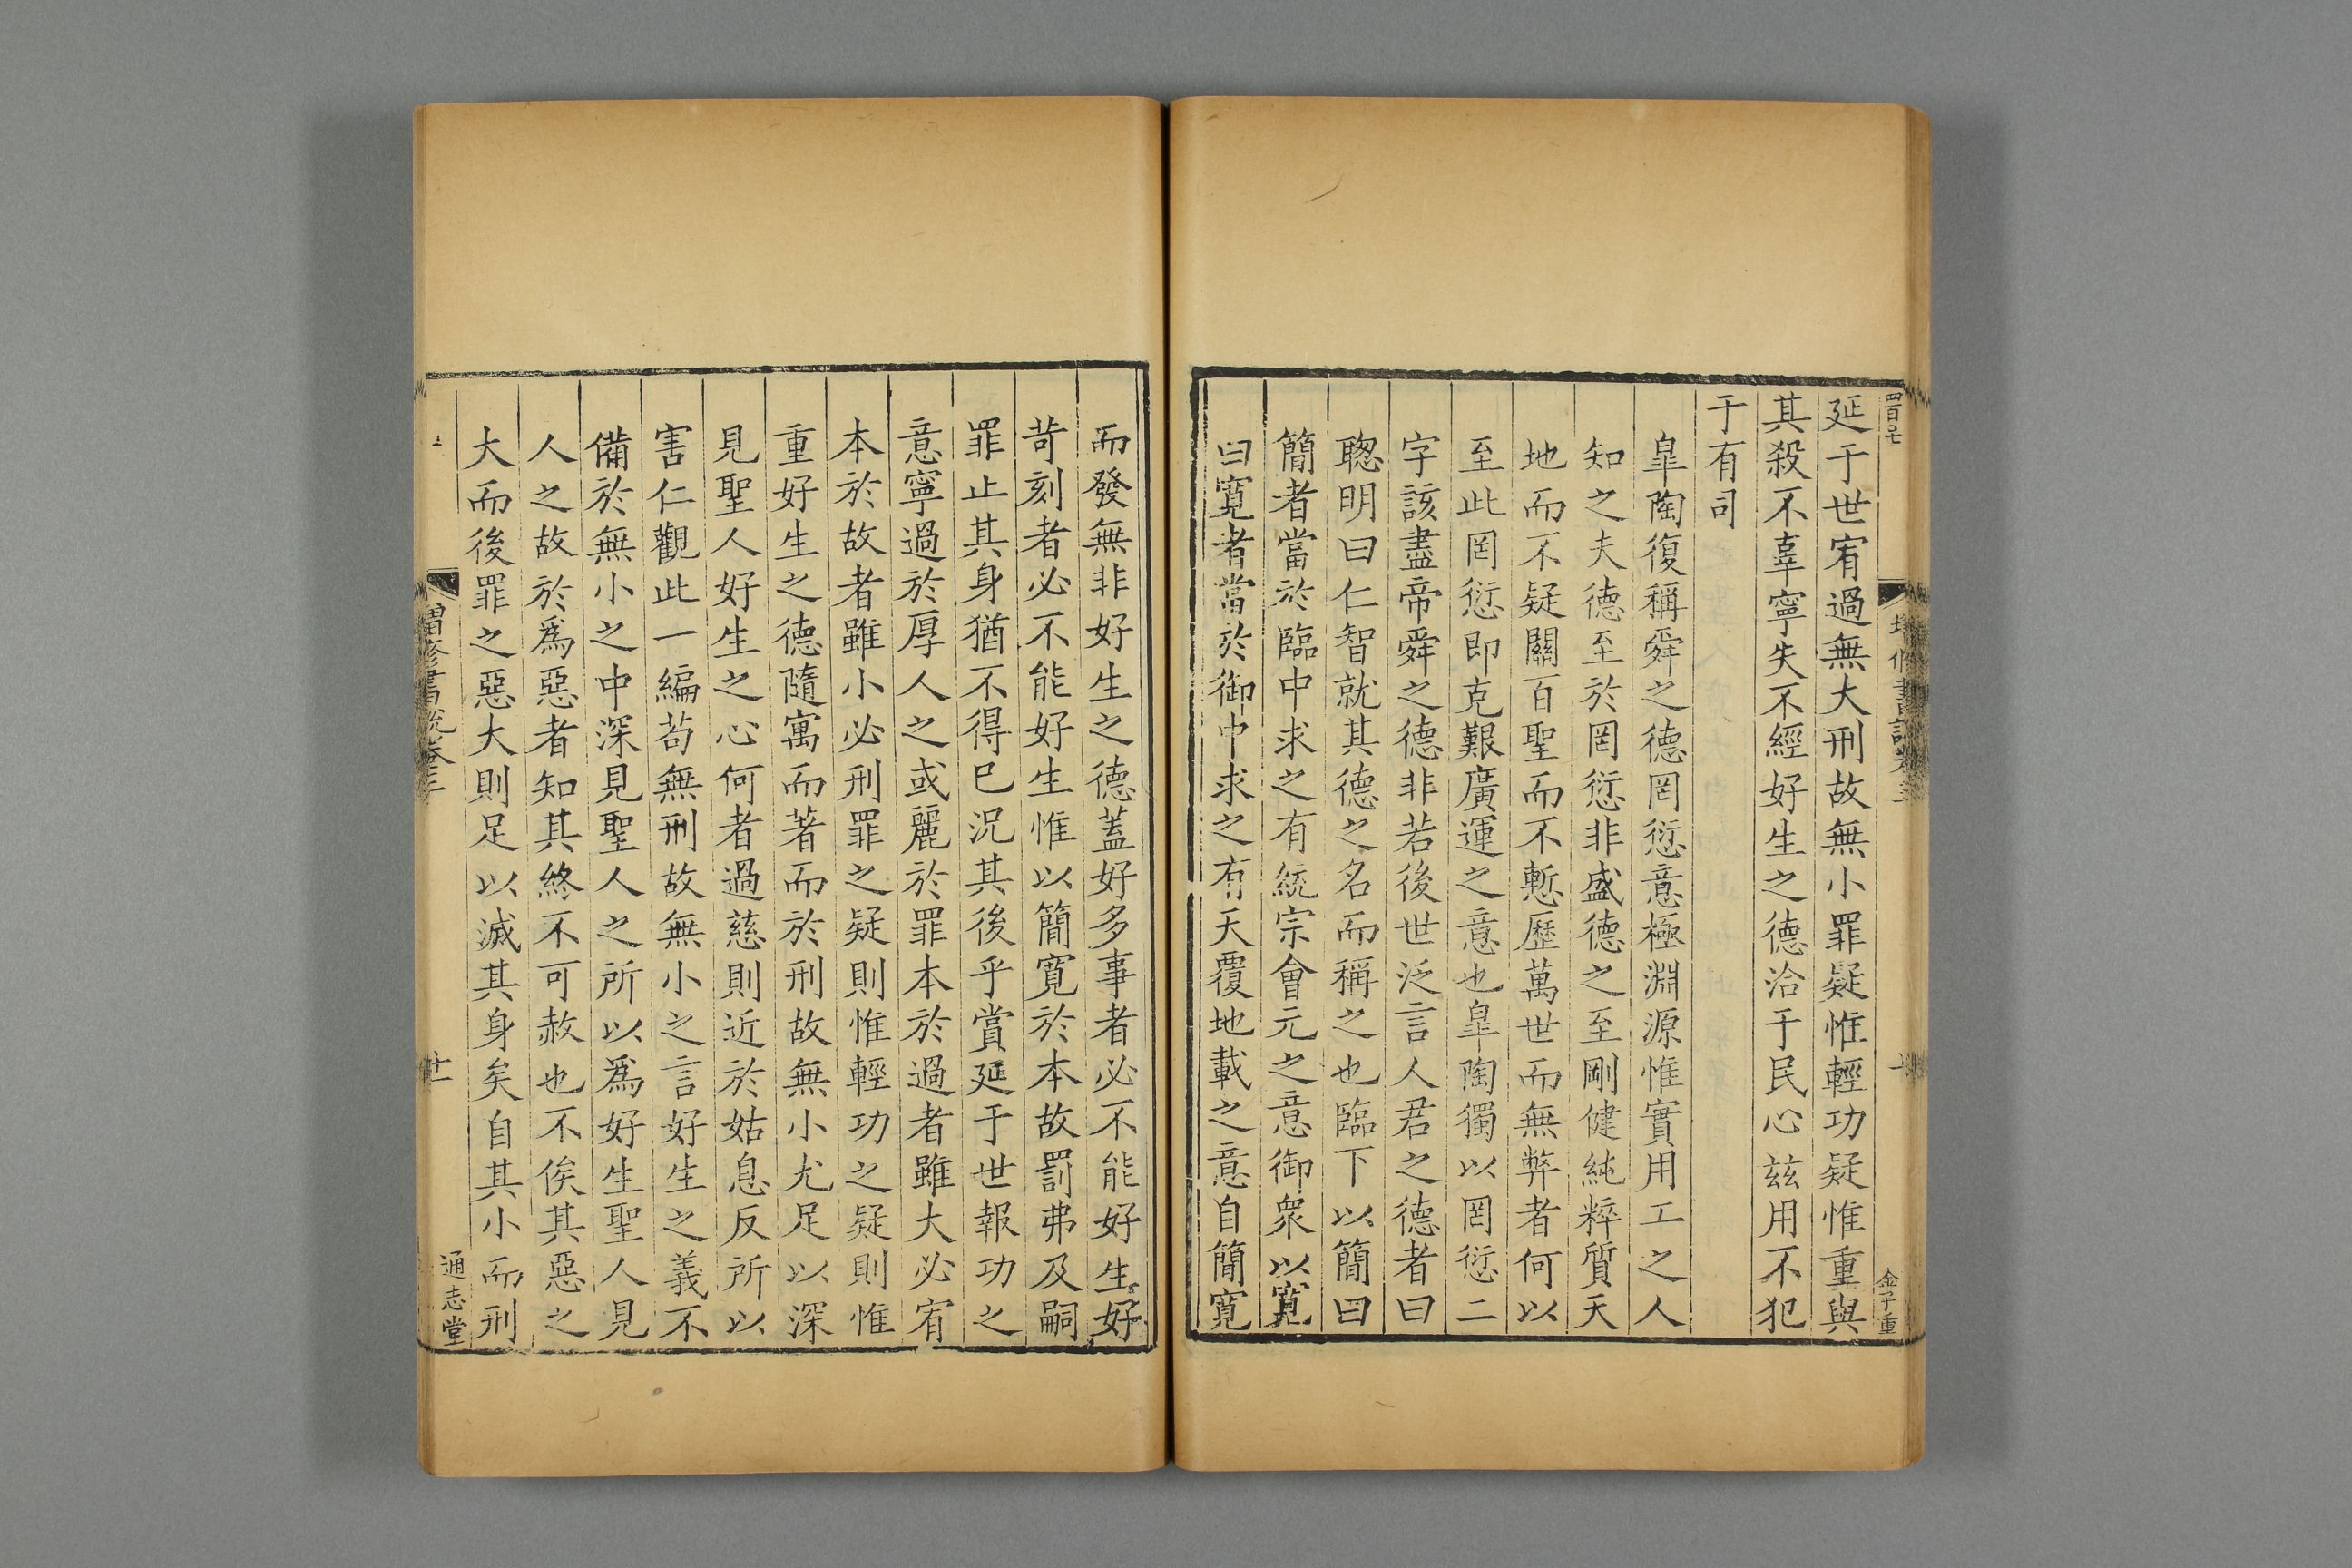 延于世宥過無大刑故無小罪疑惟輕功疑惟重與
其殺不辜寧失不經好生之德洽于民心兹用不犯
于有司
皐陶復稱舜之德罔愆意極淵源惟實用工之人
知之夫德至於罔愆非盛德之至剛健純粹質天
地而不疑關百聖而不慙歷萬世而無弊者何以
至此罔愆即克艱廣運之意也皐陶獨以罔愆二
字該盡帝舜之德非若後世泛言人君之德者曰
聦明曰仁智就其德之名而稱之也臨下以簡曰
簡者當於臨中求之有統宗會元之意御衆以寛
曰寛者當於御中求之有天覆地載之意自簡寛
而發無非好生之德蓋好多事者必不能好生好
苛刻者必不能好生惟以簡寛於本故罰弗及嗣
罪止其身猶不得已況其後乎賞延于世報功之
意寧過於厚人之或麗於罪本於過者雖大必宥
本於故者雖小必刑罪之疑則惟輕功之疑則惟
重好生之德隨寓而著而於刑故無小尤足以深
見聖人好生之心何者過慈則近於姑息反所以
害仁觀此一編茍無刑故無小之言好生之義不
備於無小之中深見聖人之所以爲好生聖人見
人之故於爲惡者知其終不可赦也不俟其惡之
大而後罪之惡大則足以滅其身矣自其小而刑
增修書説卷三
十一
通志堂
金子重